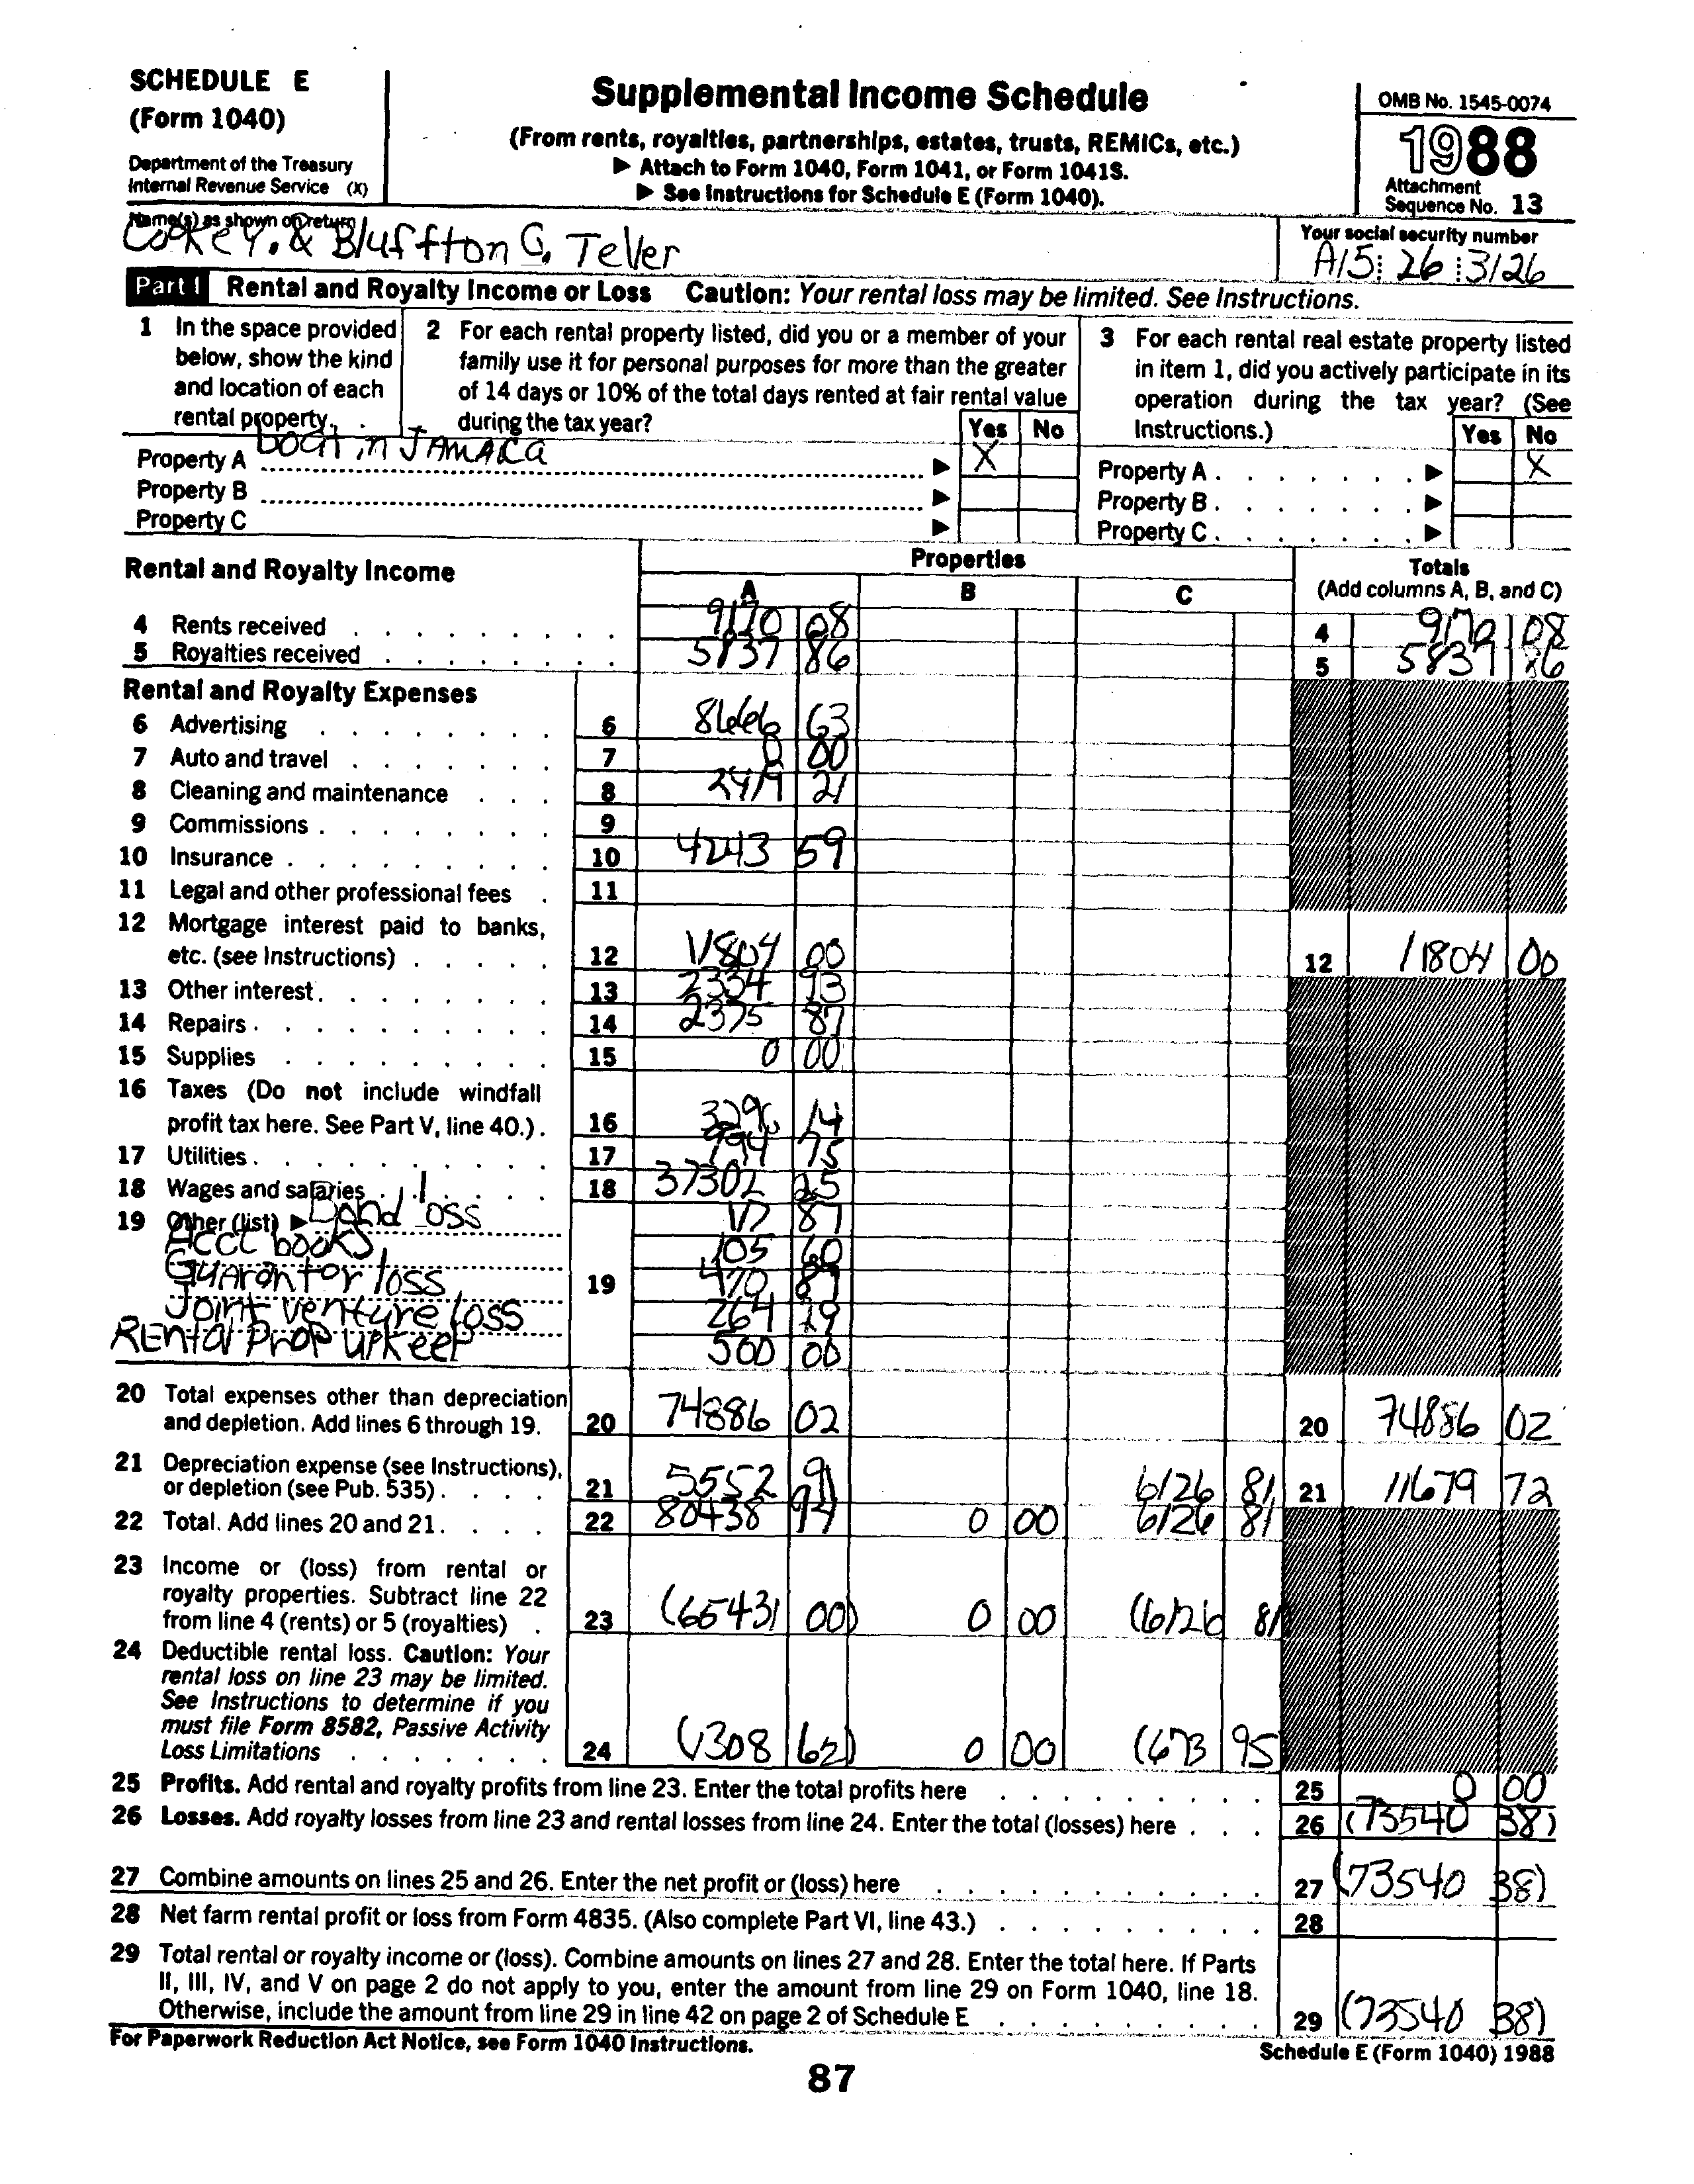 SCHEDULE E
(Form 1040)
Department of the Treasury
Internal Revenue Service (X)
Supplemental Income Schedule
(From rents, royalties, partnerships, estates, trusts, REMICs, etc.)
▶ Attach to Form 1040, Form 1041, or Form 1041S.
▶ See Instructions for Schedule E (Form 1040).
OMB No. 1545-0074
1988
Attachment
Sequence No. 13
Name(s) as shown on return
Y. & Bluffton G. Tever
Your social security number
A15: 26 :3126
Part I Rental and Royalty Income or Loss Caution: Your rental loss may be limited. See Instructions.
1 In the space provided below, show the kind and location of each rental property.
2 For each rental property listed, did you or a member of your family use it for personal purposes for more than the greater of 14 days or 10% of the total days rented at fair rental value during the tax year?
3 For each rental real estate property listed in item 1, did you actively participate in its operation during the tax year? (See Instructions.)
Yes No
Yes No
Property A in JAMACA ▶ X
Property A ▶ X
Property B ▶
Property B ▶
Property C ▶
Property C ▶
Rental and Royalty Income
Properties
Totals
A B C (Add columns A, B, and C)
4 Rents received 9170 08 4 9170 08
5 Royalties received 5837 86 5 5837 86
Rental and Royalty Expenses
6 Advertising 6 8666 63
7 Auto and travel 7 0 00
8 Cleaning and maintenance 8 2419 21
9 Commissions 9
10 Insurance 10 4243 59
11 Legal and other professional fees 11
12 Mortgage interest paid to banks, etc. (see Instructions) 12 11804 00 12 11804 00
13 Other interest 13 2334 93
14 Repairs 14 2375 87
15 Supplies 15 0 00
16 Taxes (Do not include windfall profit tax here. See Part V, line 40.) 16 3296 14
17 Utilities 17 994 75
18 Wages and salaries 18 37302 25
19 Other (list) ▶ Bond loss 117 87
Acct books 105 60
Guarantor loss 19 470 89
Joint venture loss 264 29
Rental Prop upkeep 500 00
20 Total expenses other than depreciation and depletion. Add lines 6 through 19. 20 74886 02 20 74886 02
21 Depreciation expense (see Instructions), or depletion (see Pub. 535) 21 5552 91 6126 81 21 11679 72
22 Total. Add lines 20 and 21. 22 80438 94 0 00 6126 81
23 Income or (loss) from rental or royalty properties. Subtract line 22 from line 4 (rents) or 5 (royalties) 23 (65431 00) 0 00 (6126 81
24 Deductible rental loss. Caution: Your rental loss on line 23 may be limited. See Instructions to determine if you must file Form 8582, Passive Activity Loss Limitations 24 (1308 62) 0 00 (673 95
25 Profits. Add rental and royalty profits from line 23. Enter the total profits here 25 0 00
26 Losses. Add royalty losses from line 23 and rental losses from line 24. Enter the total (losses) here 26 (73540 38)
27 Combine amounts on lines 25 and 26. Enter the net profit or (loss) here 27 (73540 38)
28 Net farm rental profit or loss from Form 4835. (Also complete Part VI, line 43.) 28
29 Total rental or royalty income or (loss). Combine amounts on lines 27 and 28. Enter the total here. If Parts II, III, IV, and V on page 2 do not apply to you, enter the amount from line 29 on Form 1040, line 18. Otherwise, include the amount from line 29 in line 42 on page 2 of Schedule E 29 (73540 38)
For Paperwork Reduction Act Notice, see Form 1040 Instructions.
Schedule E (Form 1040) 1988
87